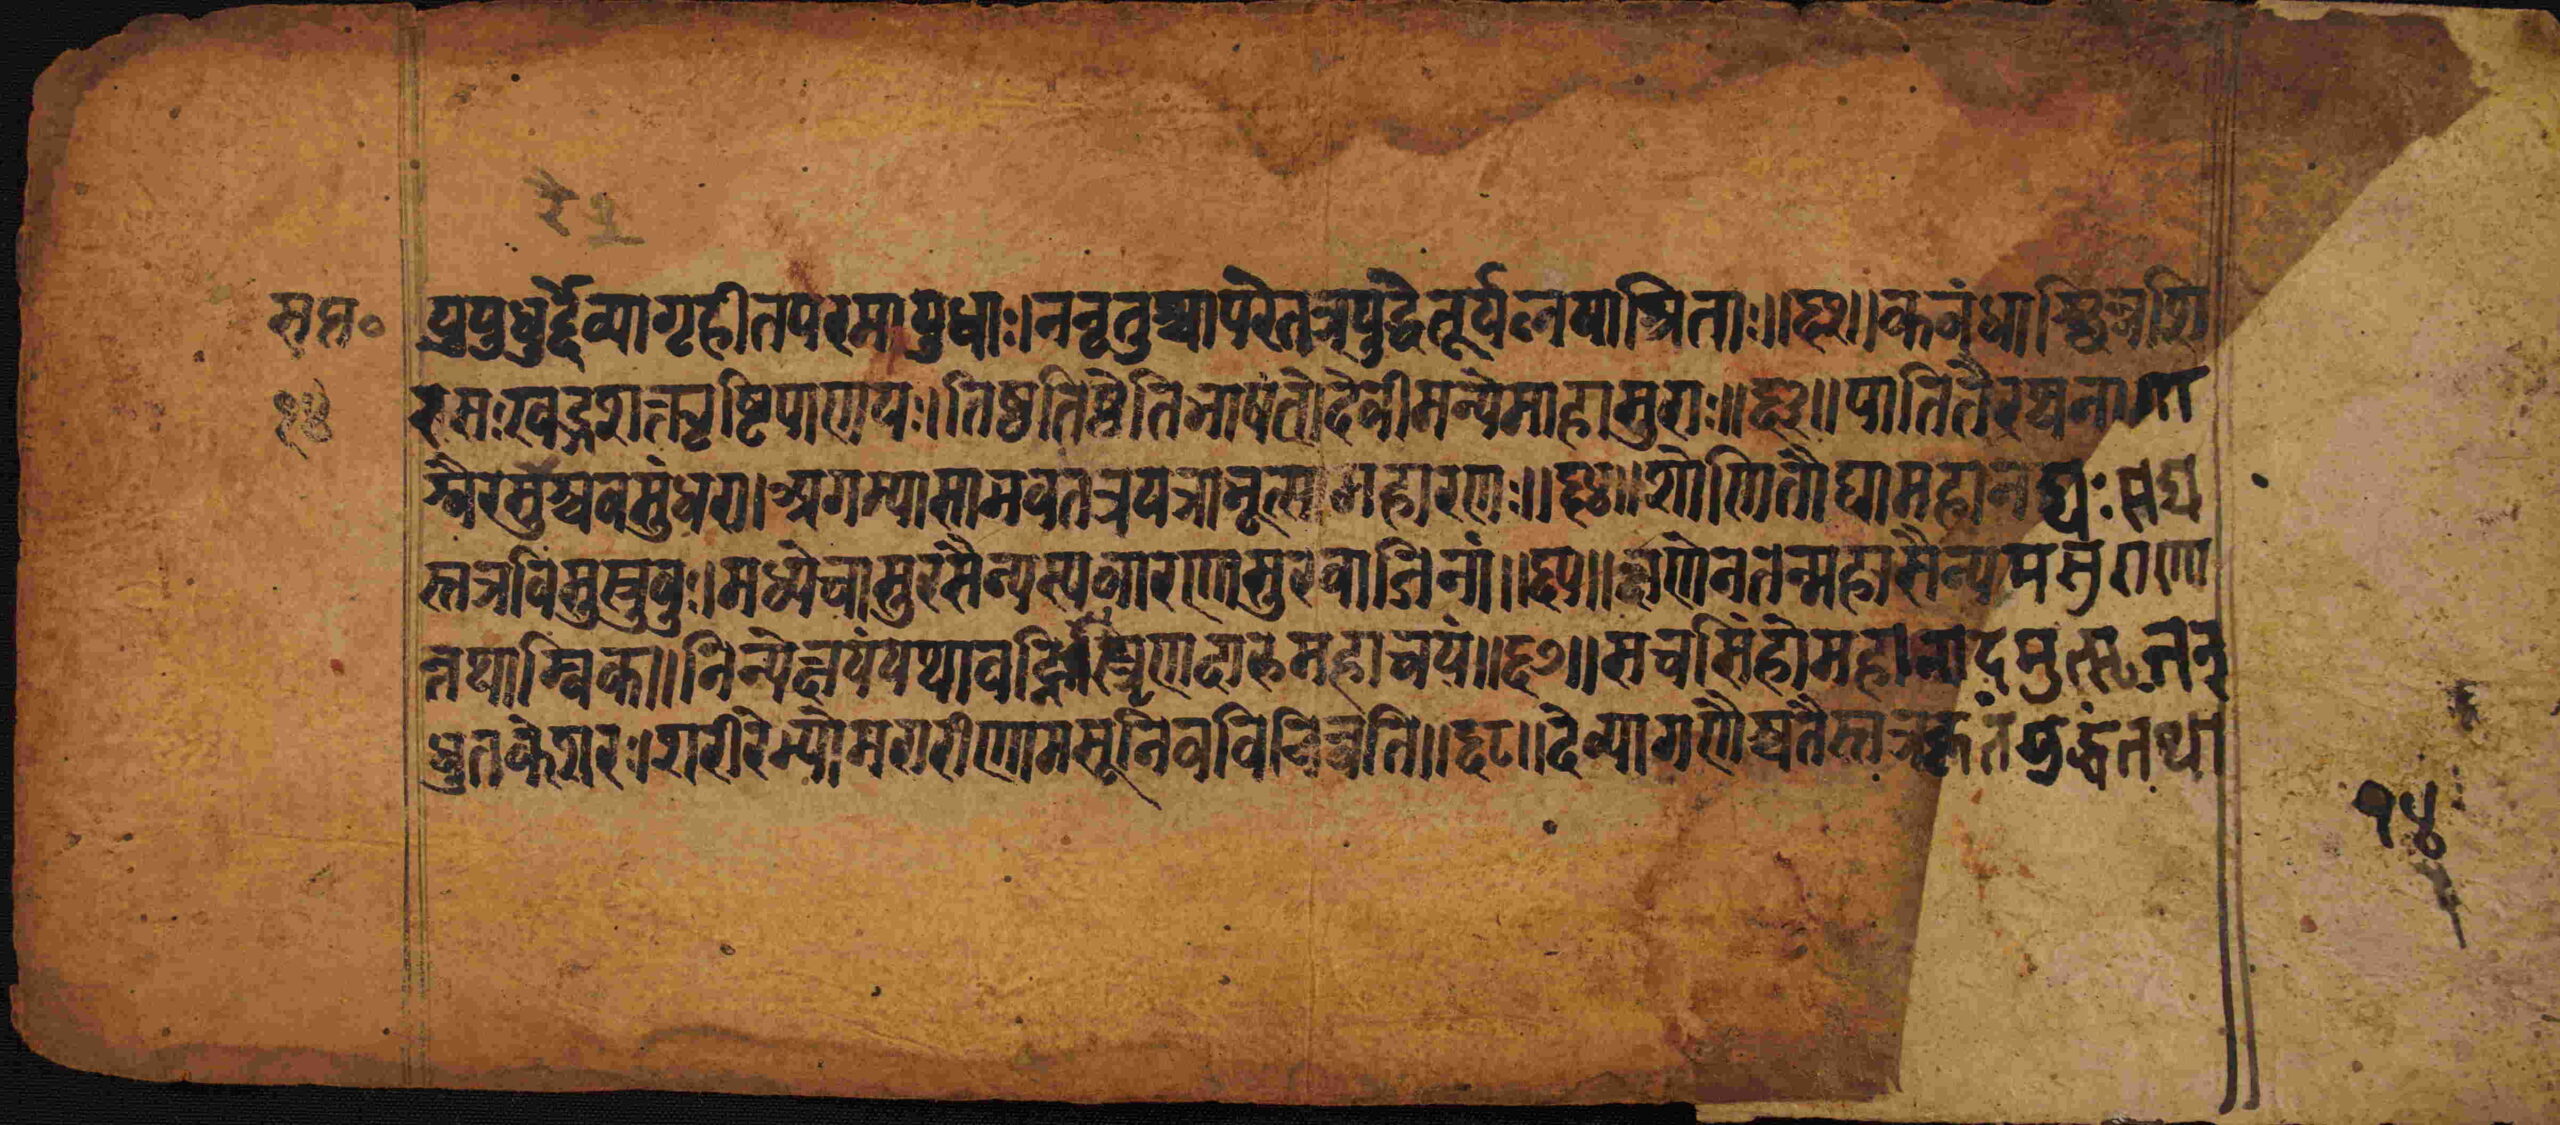 २१
सप्त॰
प्रयुयुधुर्द्देव्यागृहीतपरमायुधाः।ननृतुश्चापरेतत्रयुद्धेतूर्यलयाश्रिताः॥६२॥कबंधाश्छिन्नशि
१४
रसःखड्गशक्त्यृष्टिपाणयः।तिष्ठतिष्ठेतिभाषंतोदेवीमन्येमाहासुराः॥६३॥पातितैरथनागा
श्वैरसुरैश्चवसुंधरा।अगम्यासाभवतत्रयत्राभूत्समहारणः॥६४॥शोणितौघामहानद्यःसद्य
स्तत्रविसुस्रुवुः।मध्येचासुरसैन्यस्यवारणासुरवाजिनां॥६५॥क्षणेनतन्महासैन्यमसुराणा
न्तथाम्बिका॥निन्येक्षयंयथावह्निस्तृणदारुमहाचयं॥६७॥सचसिंहोमहानादमुत्सृजन्
धुतकेशरः।शरीरेभ्योमरारीणामसूनिवविचिन्वति॥६८॥देव्यागणैश्चतैस्तत्रकृतंयुद्धंतथा
१४